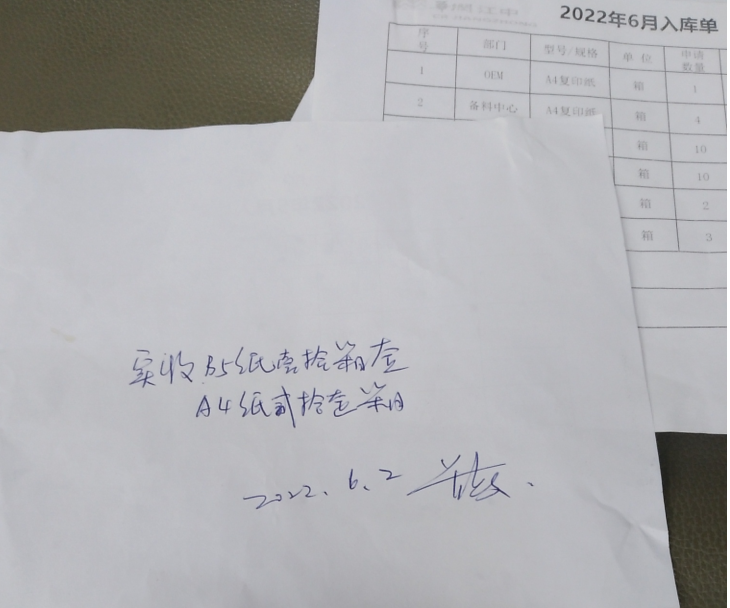 2022年6月入库单
序号 部门 型号/规格 单位 申请数量
1 OEM A4复印纸 箱 1
2 备料中心 A4复印纸 箱 4
箱 10
箱 10
箱 2
箱 3
实收B5纸壹拾箱
A4纸贰拾壹箱
2022.6.2